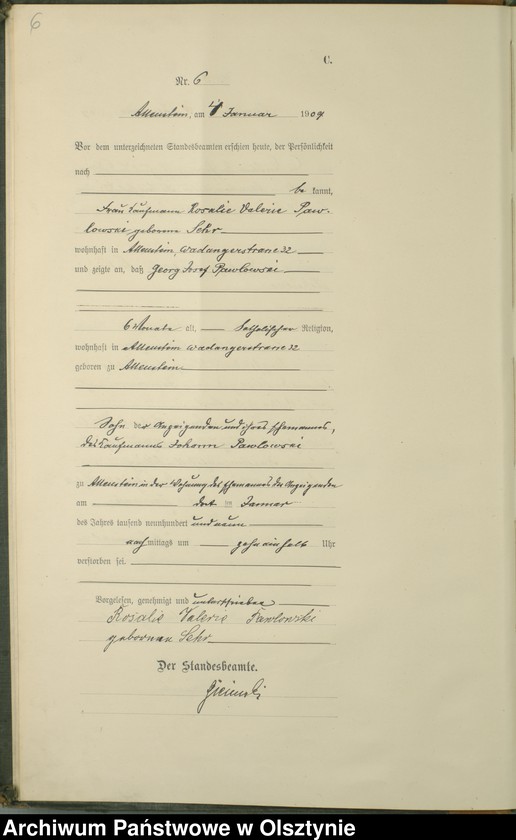 6
C.
Nr. 6
Allenstein, am 4 Januar 1909
Vor dem unterzeichneten Standesbeamten erschien heute, der Persönlichkeit
nach
be kannt,
Frau Kaufmann Rosalie Valerie Paw-
lowski geborene Sehr
wohnhaft in Allenstein, Wadangerstrasse 32
und zeigte an, daß Georg Josef Pawlowski
6 Monate alt, katholischer Religion,
wohnhaft in Allenstein Wadangerstrasse 32
geboren zu Allenstein
Sohn der Anzeigenden und ihres Ehemannes,
des Kaufmanns Johann Pawlowski
zu Allenstein in der Wohnung des Ehemannes der Anzeigenden
am Januar
des Jahres tausend neunhundert und neun
nachmittags um zehn einhalb Uhr
verstorben sei.
Vorgelesen, genehmigt und unterschrieben
Rosalie Valerie Pawlowski
geborene Sehr
Der Standesbeamte.
Archiwum Państwowe w Olsztynie